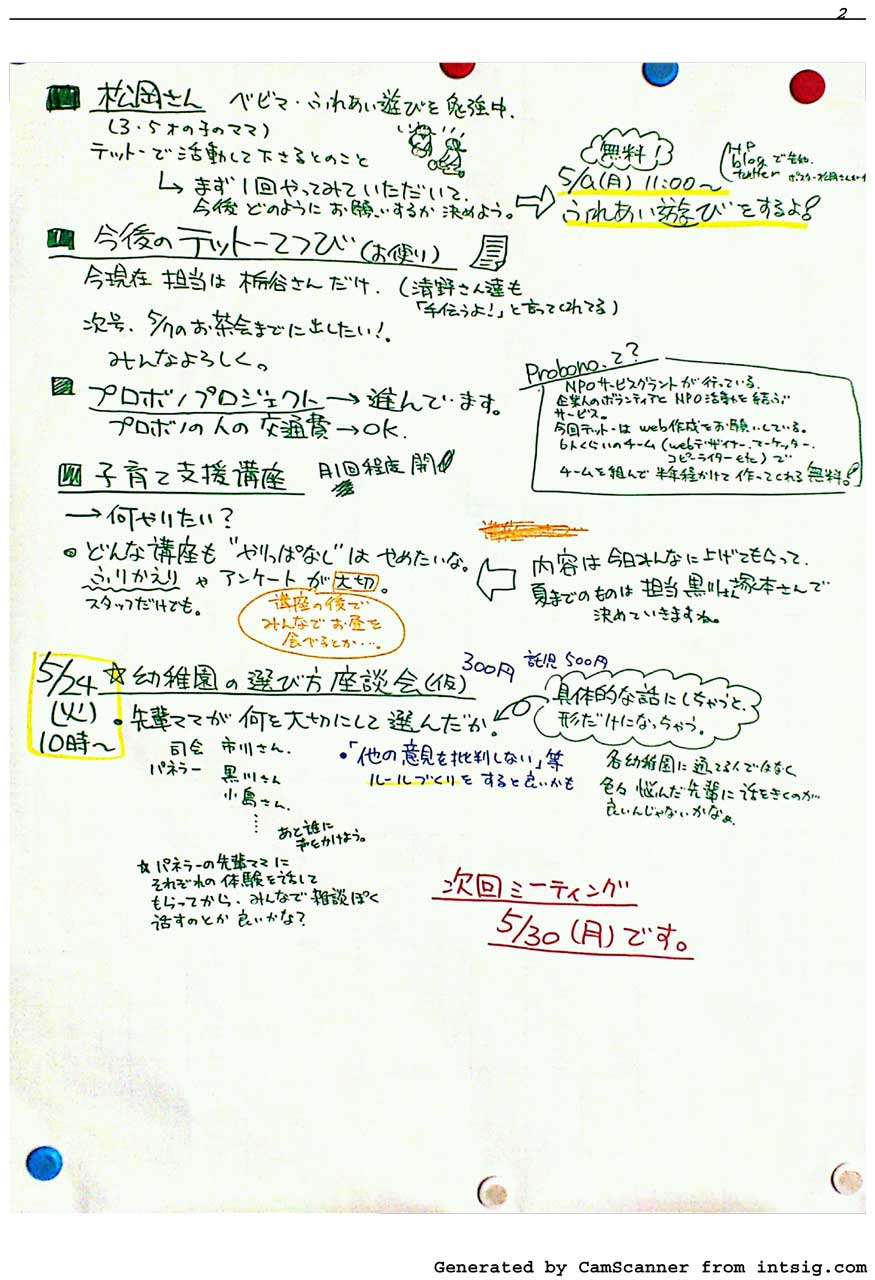 2
松岡さん ベビマ・ふれあい遊びを勉強中.
(3・5才の子のママ)
テットーで活動して下さるとのこと
↳ まず1回やってみていただいて.
今後どのようにお願いするか決めよう。
⇨
無料!
5/9(月) 11:00〜
ふれあい遊びをするよ!
HP
blog で告知
twitter
今後のテットーてつび(お便り)
今現在 担当は 栃谷さんだけ. (清野さん達も
「手伝うよ!」と言ってくれてる)
次号、5/7のお茶会までに出したい!.
みんなよろしく。
プロボノプロジェクト → 進んでいます。
プロボノの人の交通費 → OK.
Probono.て?
NPOサービスグラントが行っている.
企業人のボランティアとNPO活動を結ぶ
サービス。
今回テットーはweb作成をお願いしている。
6人くらいのチーム(webデザイナー.マーケッター.
コピーライターetc)で
チームを組んで 半年程かけて作ってくれる 無料!
子育て支援講座 月1回程度 開
→ 何やりたい?
• どんな講座も"やりっぱなし"はやめたいな。
ふりかえり や アンケート が 大切。
スタッフだけでも。
講座の後で
みんなでお昼を
食べるとか・・・。
内容は今日みんなに上げてもらって.
夏までのものは担当 黒川さん 塚本さんで
決めていきますね。
5/24
(火)
10時〜
☆幼稚園の選び方座談会(仮) 300円 託児500円
• 先輩ママが何を大切にして選んだか.
具体的な話にしちゃうと、
形だけになっちゃう。
司会 市川さん.
パネラー 黒川さん
小島さん.
あと誰に
声をかけよう。
•「他の意見を批判しない」等
ルールづくりをすると良いかも
各幼稚園に通ってる人ではなく
色々 悩んだ先輩に話をきくのが
良いんじゃないかなぁ
☆ パネラーの先輩ママに
それぞれの体験を話して
もらってから、みんなで雑談ぽく
話すのとか 良いかな?
次回ミーティング
5/30(月)です。
Generated by CamScanner from intsig.com